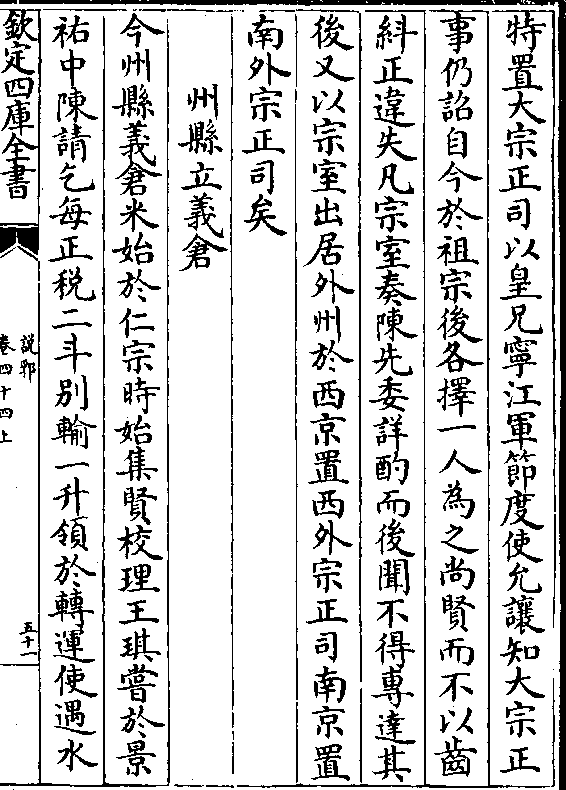 特置大宗正司以皇兄寧江軍節度使允讓知大宗正
事仍詔自今於祖宗後各擇一人為之尚賢而不以齒
糾正違失凡宗室奏陳先委詳酌而後聞不得專達其
後又以宗室出居外州於西京置西外宗正司南京置
南外宗正司矣
州縣立義倉
今州縣義倉米始於仁宗時始集賢校理王琪嘗於景
祐中陳請乞每正税二斗别輸一升領於轉運使遇水
欽定四庫全書
説郛
卷四十四上
五十一